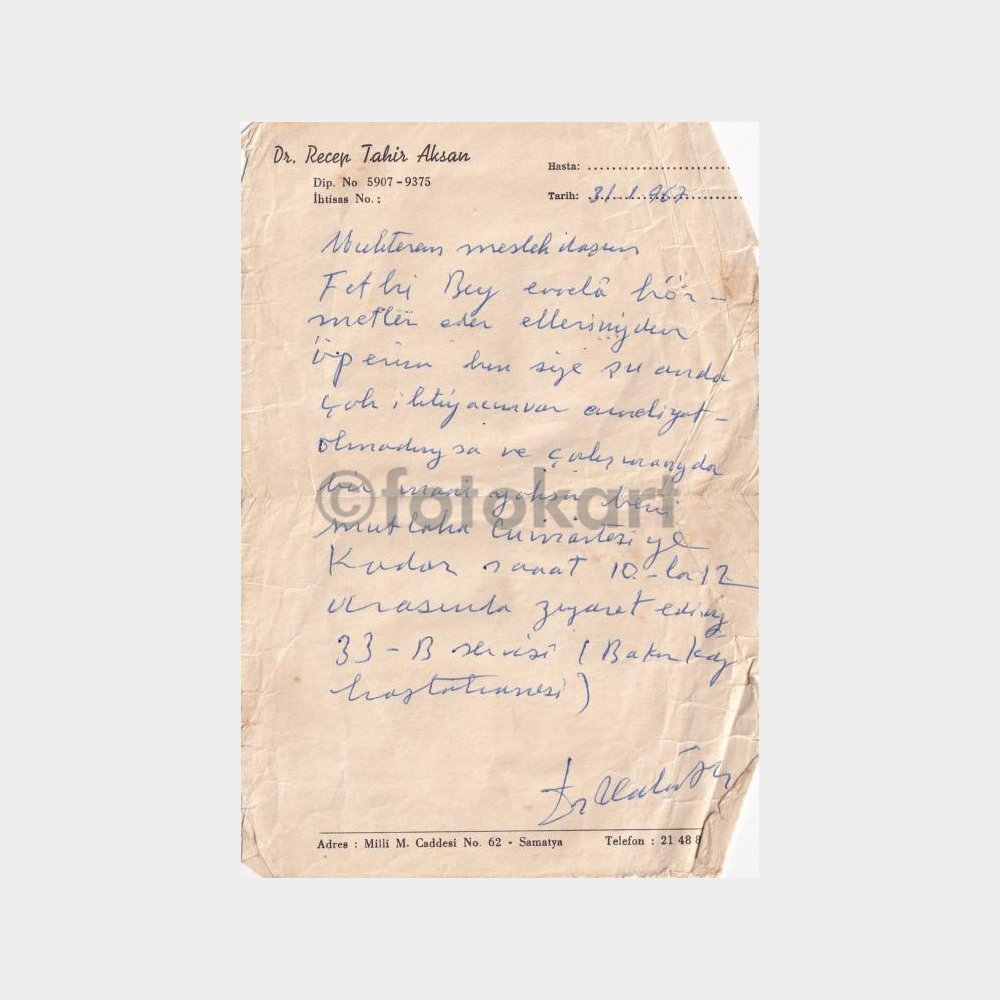 Dr. Recep Tahir Aksan
Dip. No 5907-9375
İhtisas No.:
Hasta:
Tarih: 31.1.967
Muhterem meslekdaşım
Fethi Bey evvelâ hör-
metler eder ellerinizden
öperim ben size şu anda
çok ihtiyacım var ameliyat-
olmadıysa ve çalışmanızda
bir mani yoksa beni
mutlaka Cumartesiye
Kadar saat 10-la 12
arasında ziyaret ediniz
33-B servisi (Bakırköy
hastahanesi)
Dr
©fotokart
Adres : Milli M. Caddesi No. 62 - Samatya
Telefon : 21 48 8